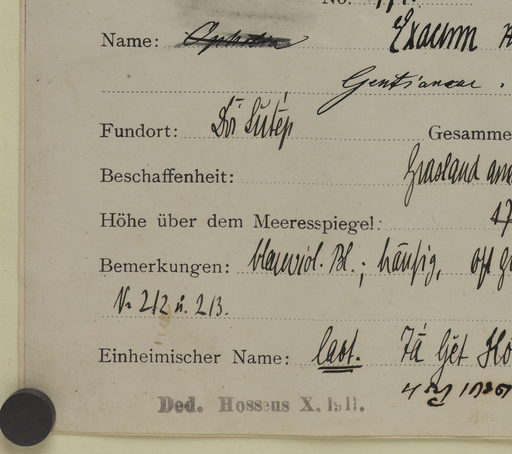 No.
Name: Exacum
Gentianaceae.
Fundort: Dōi Sutép Gesamme
Beschaffenheit: Grasland am
Höhe über dem Meeresspiegel: 17
Bemerkungen: blauviol. Bl.; häufig, oft
N. 212 u. 213.
Einheimischer Name: laot. Yá
Ded. Hosseus X. 1911.